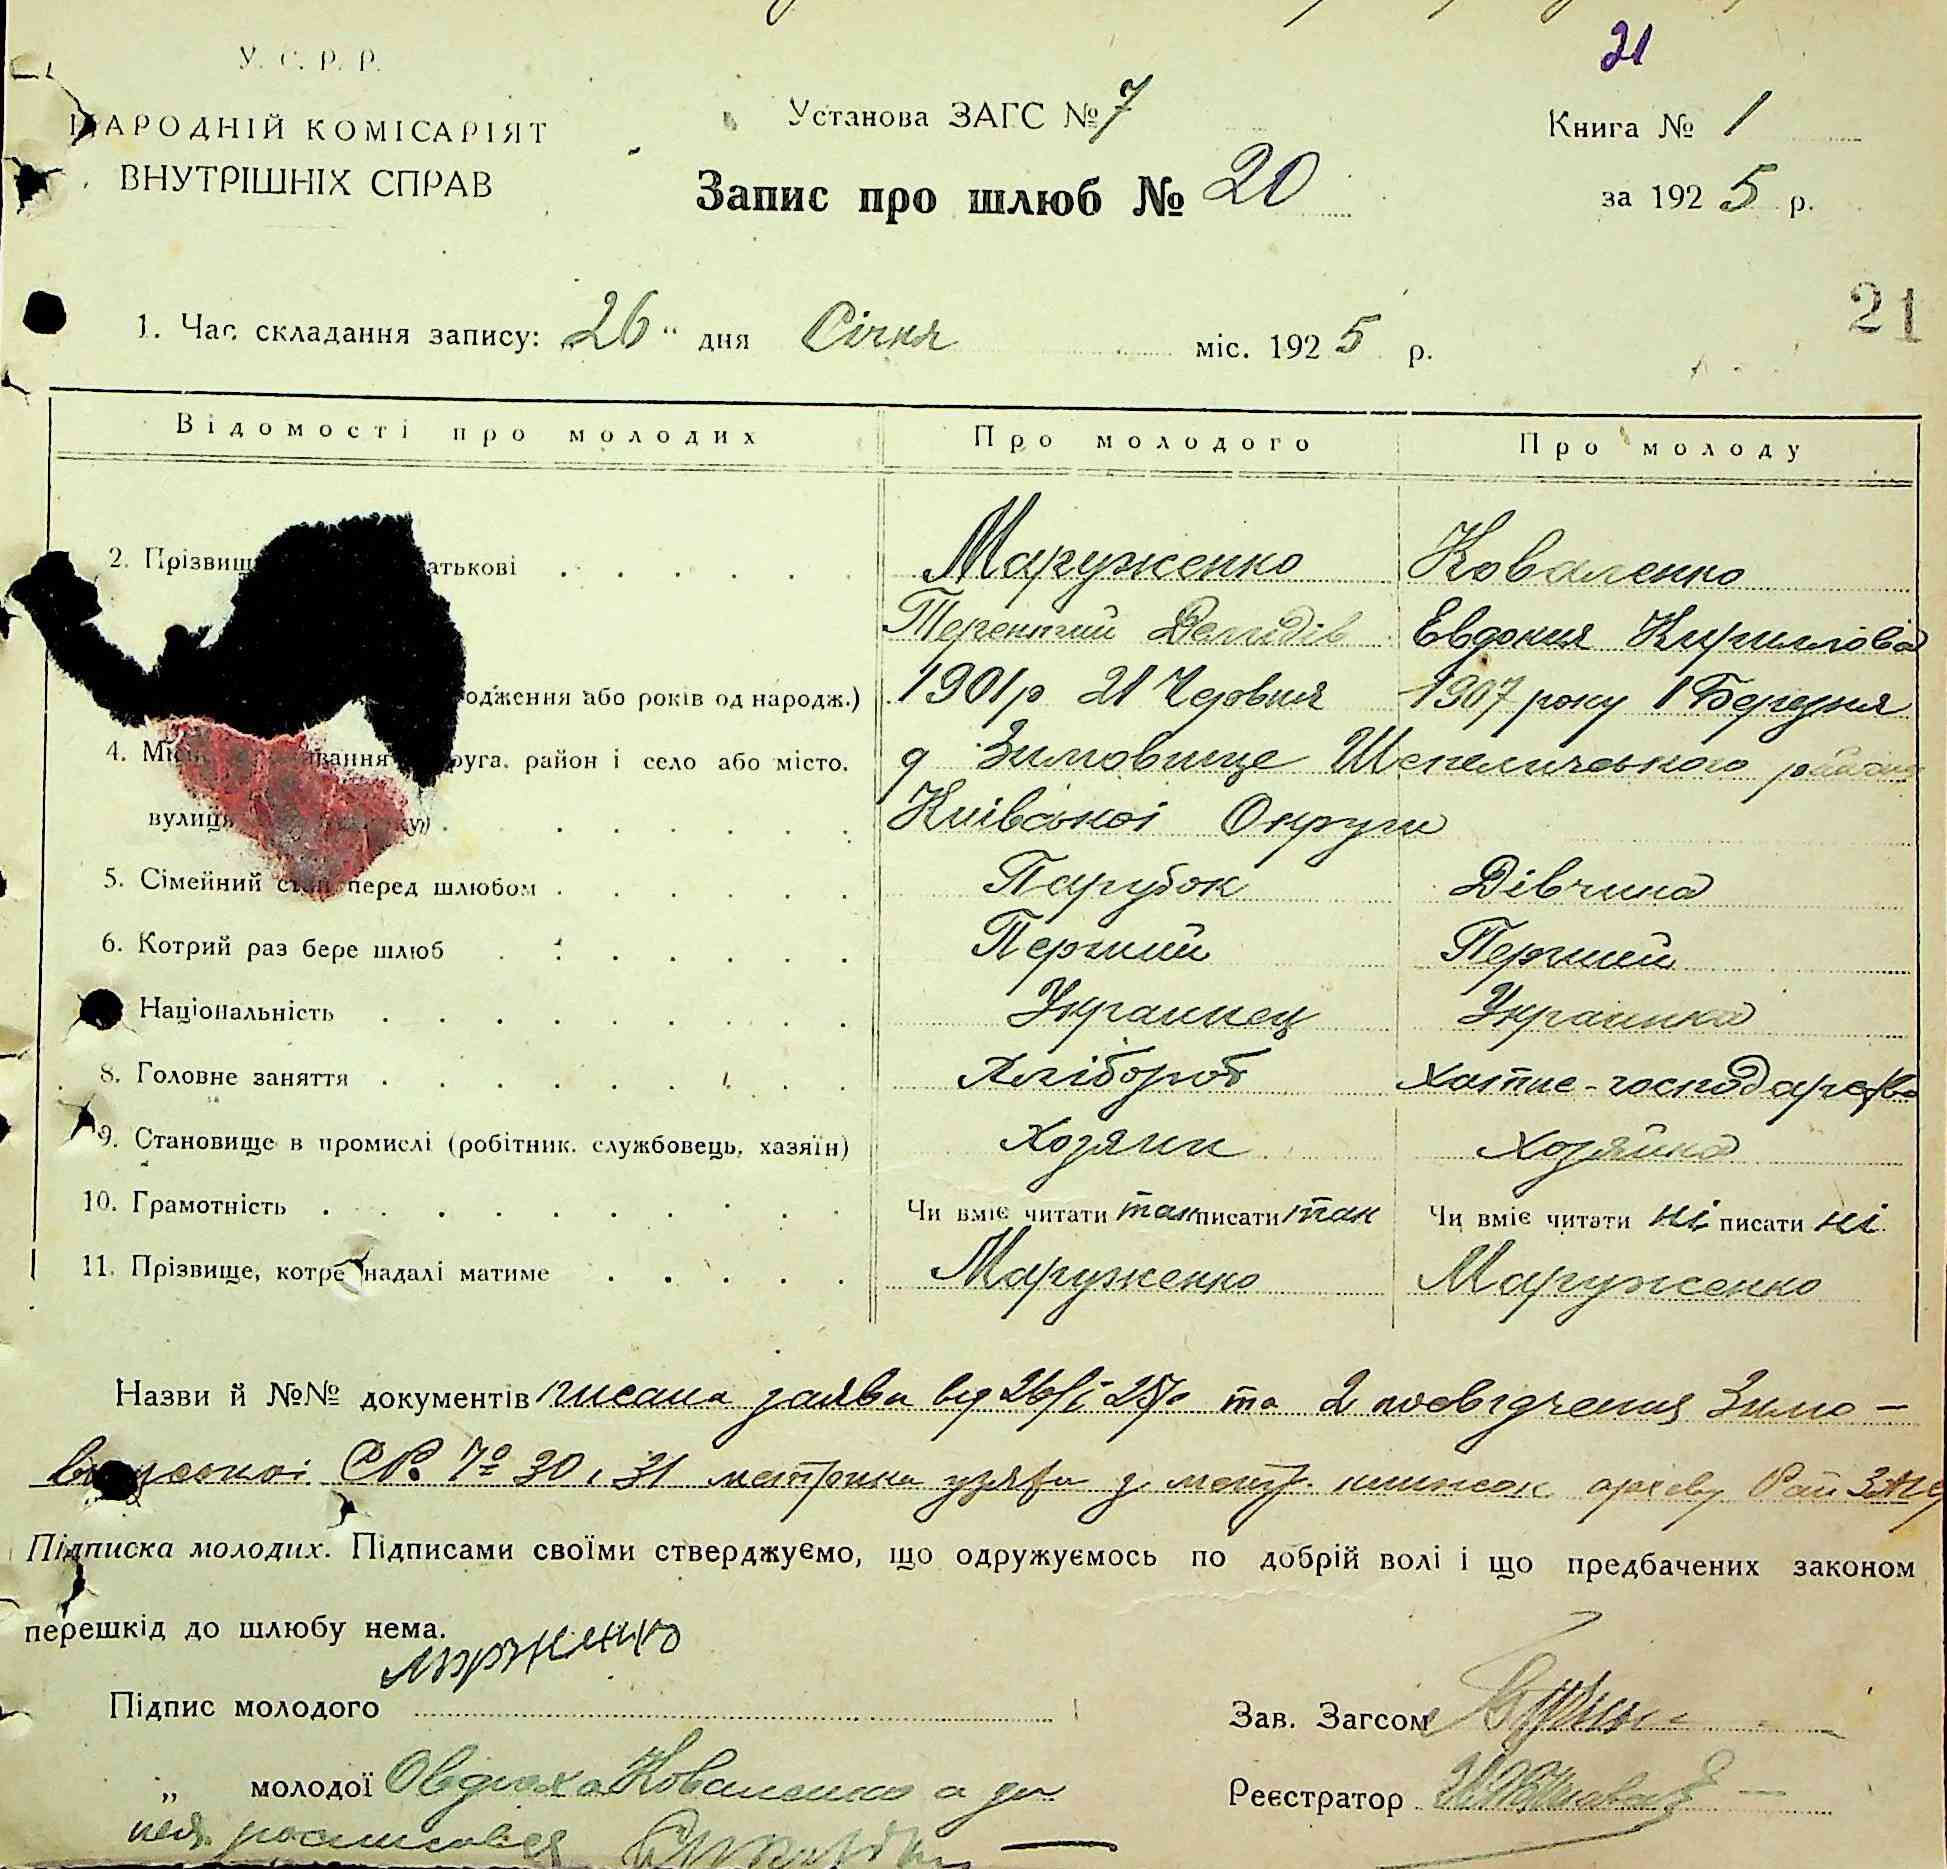 21
У. С. Р. Р.
НАРОДНІЙ КОМІСАРІЯТ
ВНУТРІШНІХ СПРАВ
Установа ЗАГС № 7
Запис про шлюб № 20
Книга № 1
за 1925 р.
21
1. Час складання запису: „26" дня Січня міс. 1925 р.
Відомості про молодих Про молодого Про молоду
2. Прізвищ атькові Маруженко Коваленко
Терентий Демидів Евдокия Кирилова
одження або років од народж.) 1901 р 21 Червня 1907 року 1 Березня
4. Місц вання руга, район і село або місто, д Зимовище Шепелического района
вулиця Киівськоі Округи
5. Сімейний стан перед шлюбом Парубок Дівчина
6. Котрий раз бере шлюб Перший Перший
Національність Украинец Украинка
8. Головне заняття Хлібороб хатне-господарство
9. Становище в промислі (робітник, службовець, хазяїн) Хозяин Хозяйка
10. Грамотність Чи вміє читати так писати так Чи вміє читати ні писати ні
11. Прізвище, котре надалі матиме Маруженко Маруженко
Назви й №№ документів писана заява від 26/I 25 р та 2 посвідчення Зимо-
СР. № 30 і 31 метрика узята з метр. книжок архіву Рай ЗАГСу
Підписка молодих. Підписами своїми стверджуємо, що одружуємось по добрій волі і що предбачених законом
перешкід до шлюбу нема.
Підпис молодого
Зав. Загсом
„ молодої Овдоха Коваленко а за
нея росписався
Реєстратор